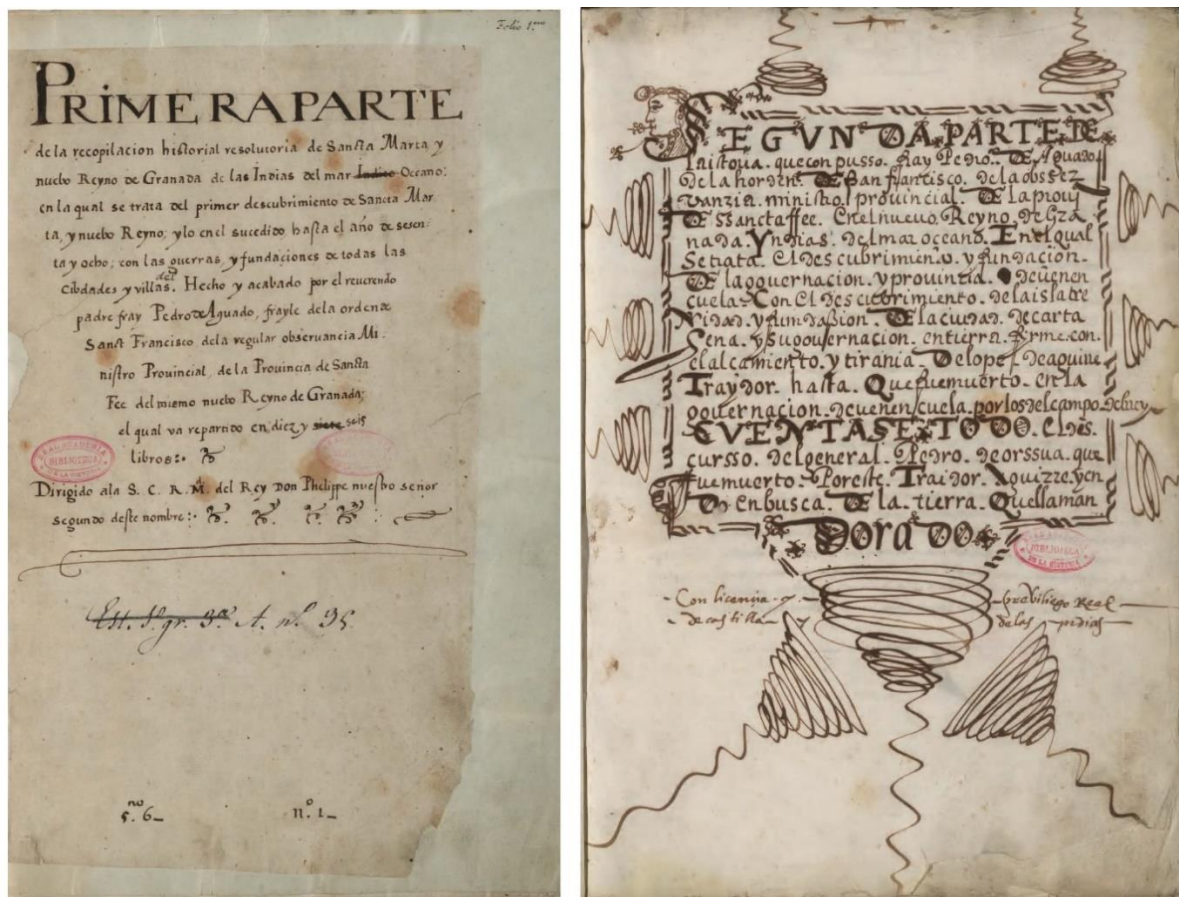 Folio 1.mo
PRIMERA PARTE
de la recopilacion historial resolutoria de Sancta Marta y
nuebo Reyno de Granada de las Indias del mar Indico Oceano:
en la qual se trata del primer descubrimiento de Sancta Mar-
ta, y nuebo Reyno; y lo en el sucedido hasta el año de sesen-
ta y ocho; con las guerras, y fundaciones de todas las
Cibdades y villas del. Hecho y acabado por el reuerendo
padre fray Pedro de Aguado, frayle de la orden de
Sanct Francisco de la regular obseruancia Mi-
nistro Prouincial, de la Prouincia de Sancta
Fee del mismo nuebo Reyno de Granada;
el qual va repartido en diez y siete seis
libros:
REAL ACADEMIA
BIBLIOTECA
DE LA HISTORIA
Dirigido ala S. C. R. M. del Rey Don Phelippe nuestro señor
segundo deste nombre:
Est. 1.ª gr. 3.ª A. n.º 35
5.no 6_
n.º 1_
SEGVNDA. PARTE DE
la istoria. que con pusso. fray Pedro. DE Aguado
de la horden. DE San francisco. de la obser
vanzia. ministro provincial. DE la proui
DE Sancta ffee. En el nuevo. Reyno. de Gra
nada. Yndias. del mar oceano. En el qual
Se trata. El des cubrimiento. y fundacion.
DE la governacion. y provintia. de uenen
cuela. Con El des cubrimiento. de la isla tre
Nidad. y fundassion. DE la ciudad. de carta
Gena. y su governacion. en tierra. firme. con
el alcamiento. y tirania. De lope. de aguirre
Traydor. hasta. Que fue muerto. en la
governacion. de uenen cuela. por los del campo. del rey
CVENTASE. TODO. El des
cursso. del general. Pedro. de orssua. que
fue muerto. Por este. Traidor. Aguirre. yen
Do en busca. DE la. tierra. Que llaman
DORADO
REAL ACADEMIA
BIBLIOTECA
DE LA HISTORIA
Con licencia y previliego Real
de castilla y de las yndias